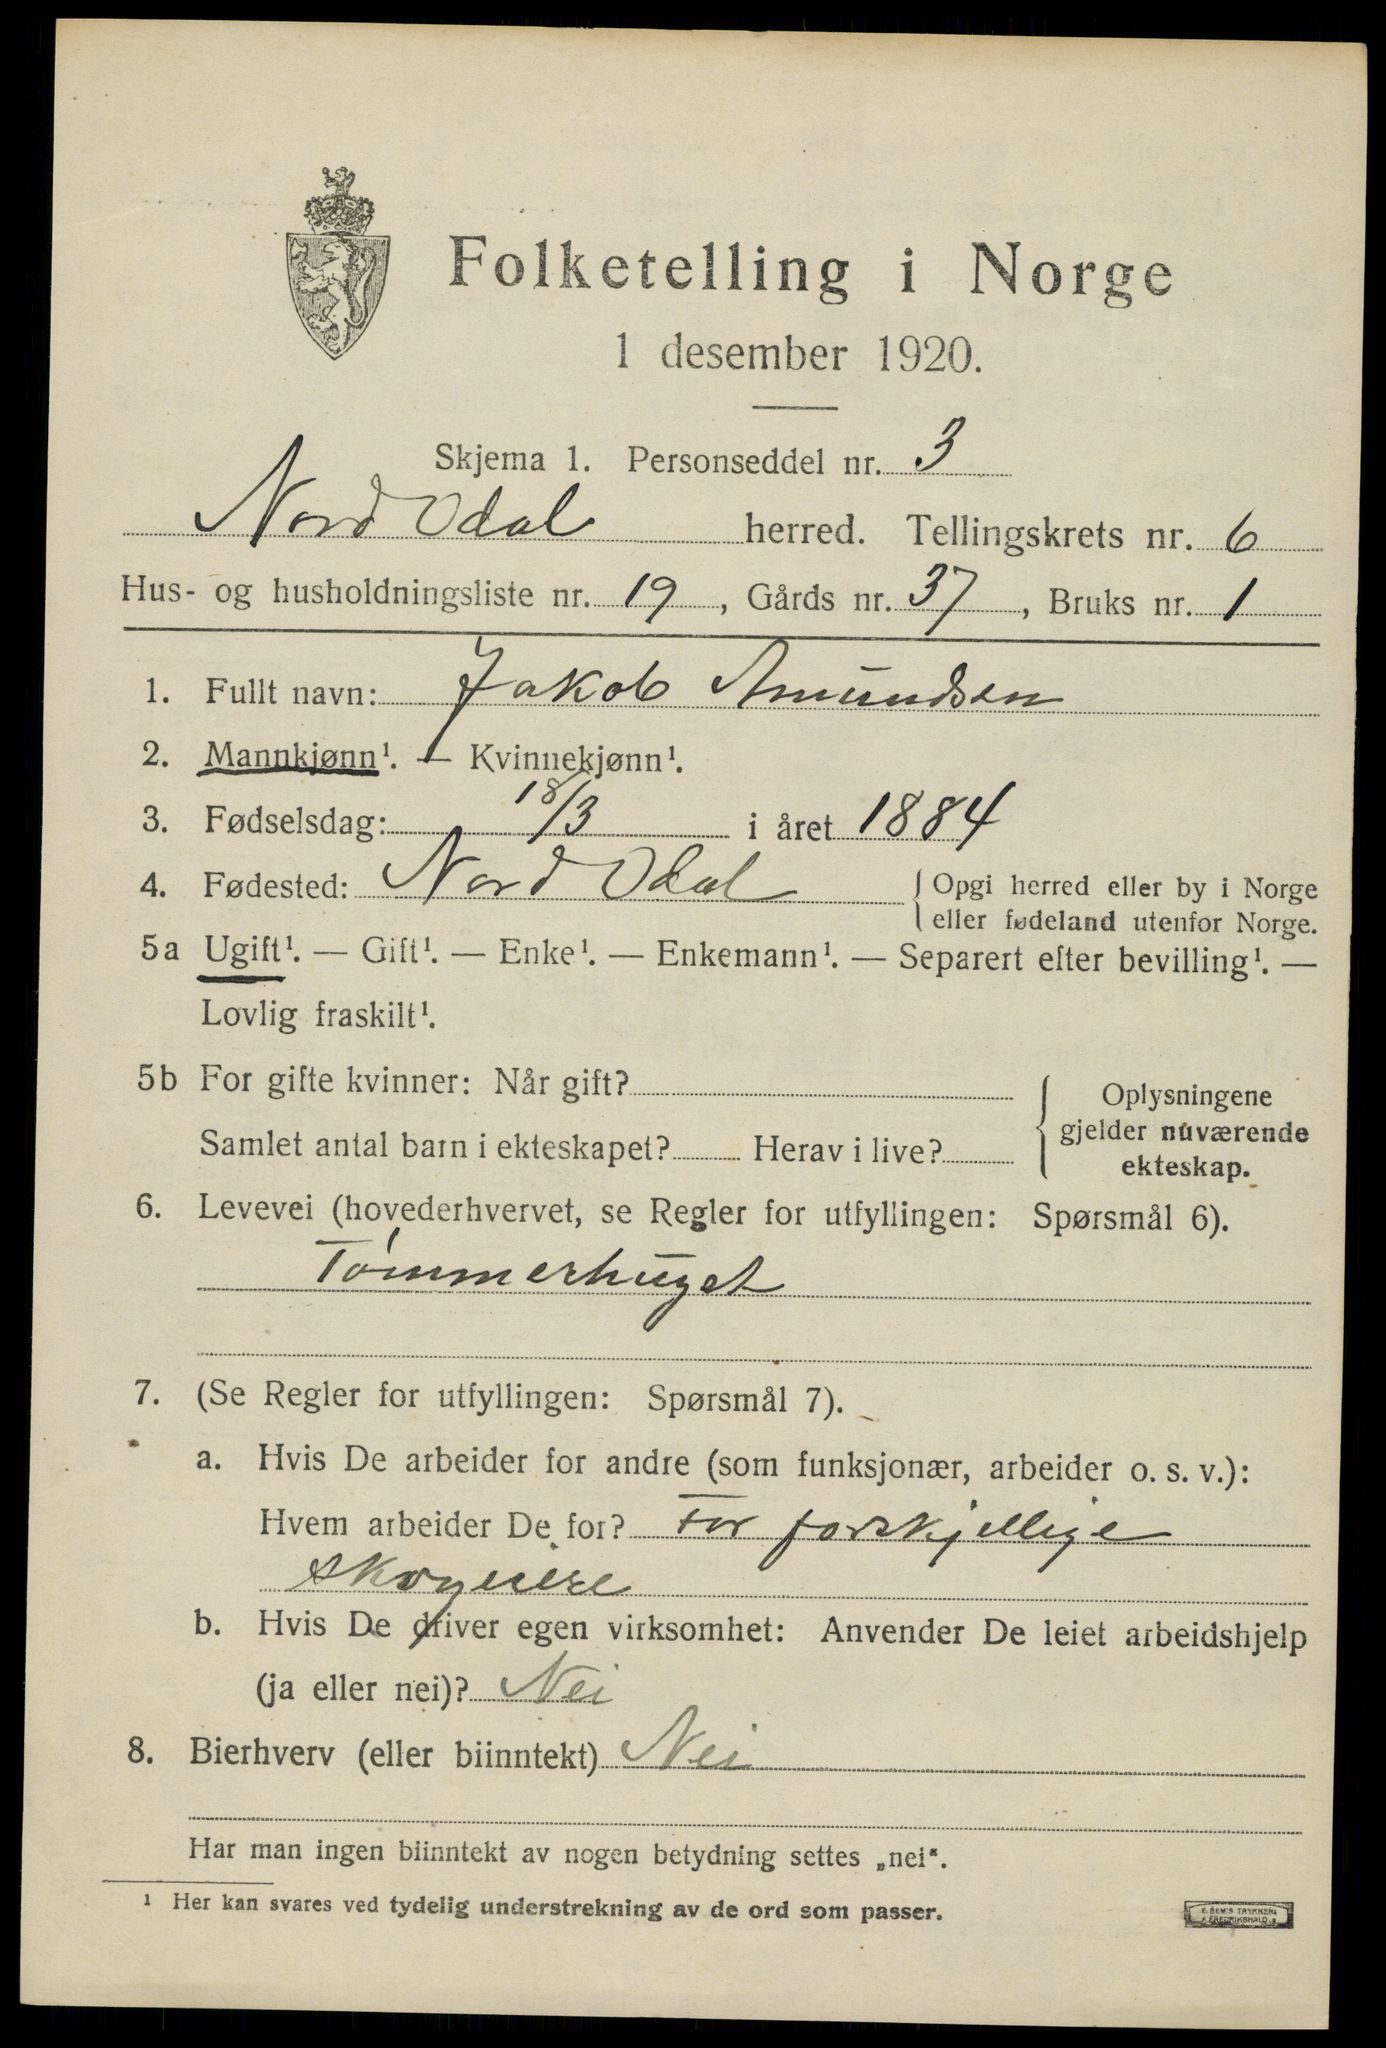 Folketelling i Norge
1 desember 1920.
Skjema 1. Personseddel nr. 3
Nord Odal herred. Tellingskrets nr. 6
Hus- og husholdningsliste nr. 19, Gårds nr. 37, Bruks nr. 1
1. Fullt navn: Jakob Amundsen
2. Mannkjønn¹. — Kvinnekjønn¹.
3. Fødselsdag: 18/3 i året 1884
4. Fødested: Nord Odal { Opgi herred eller by i Norge
eller fødeland utenfor Norge.
5a Ugift¹. — Gift¹. — Enke¹. — Enkemann¹. — Separert efter bevilling¹. —
Lovlig fraskilt¹.
5b For gifte kvinner: Når gift? { Oplysningene
gjelder nuværende
Samlet antal barn i ekteskapet? Herav i live? ekteskap.
6. Levevei (hovederhvervet, se Regler for utfyllingen: Spørsmål 6).
Tømmerhuget
7. (Se Regler for utfyllingen: Spørsmål 7).
a. Hvis De arbeider for andre (som funksjonær, arbeider o. s. v.):
Hvem arbeider De for? For forskjellige
skogeiere
b. Hvis De driver egen virksomhet: Anvender De leiet arbeidshjelp
(ja eller nei)? Nei
8. Bierhverv (eller biinntekt) Nei
Har man ingen biinntekt av nogen betydning settes „nei“.
¹ Her kan svares ved tydelig understrekning av de ord som passer.
E. SEM'S TRYKKERI
FREDRIKSHALD